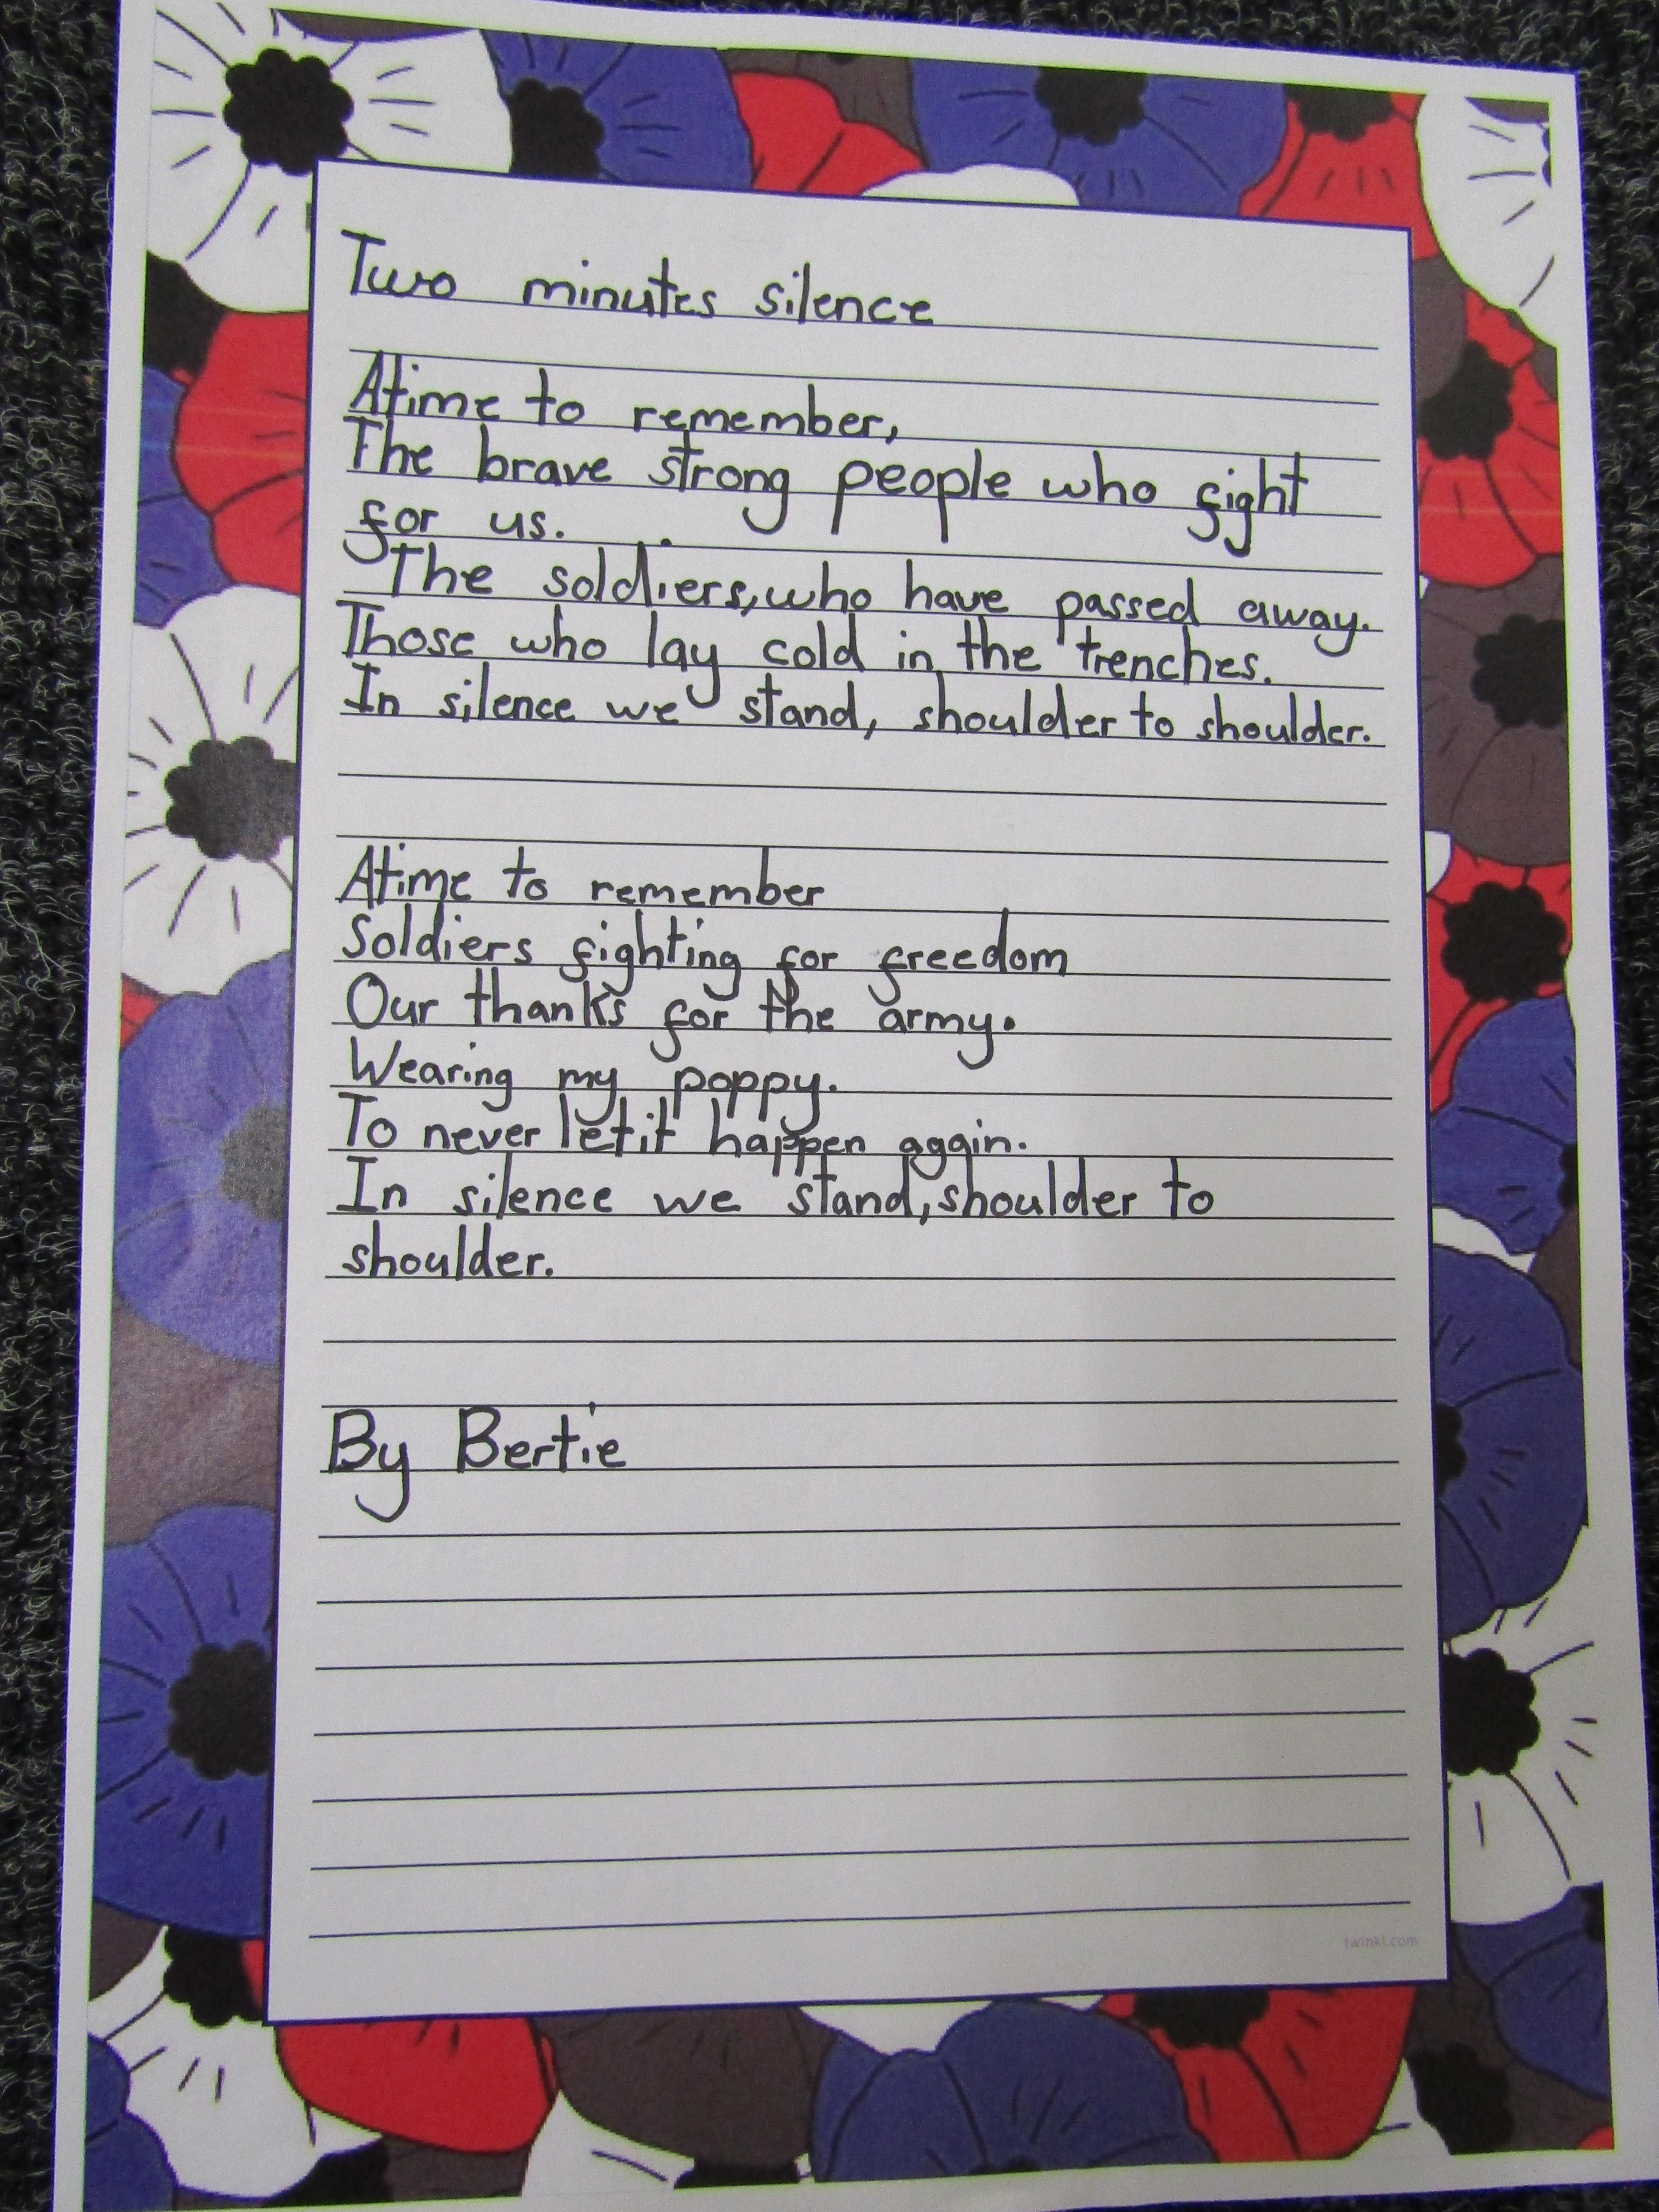 Two minutes silence
A time to remember,
The brave strong people who fight
for us.
The soldiers, who have passed away.
Those who lay cold in the trenches.
In silence we stand, shoulder to shoulder.
A time to remember
Soldiers fighting for freedom
Our thanks for the army.
Wearing my poppy.
To never let it happen again.
In silence we stand, shoulder to
shoulder.
By Bertie
twinkl.com